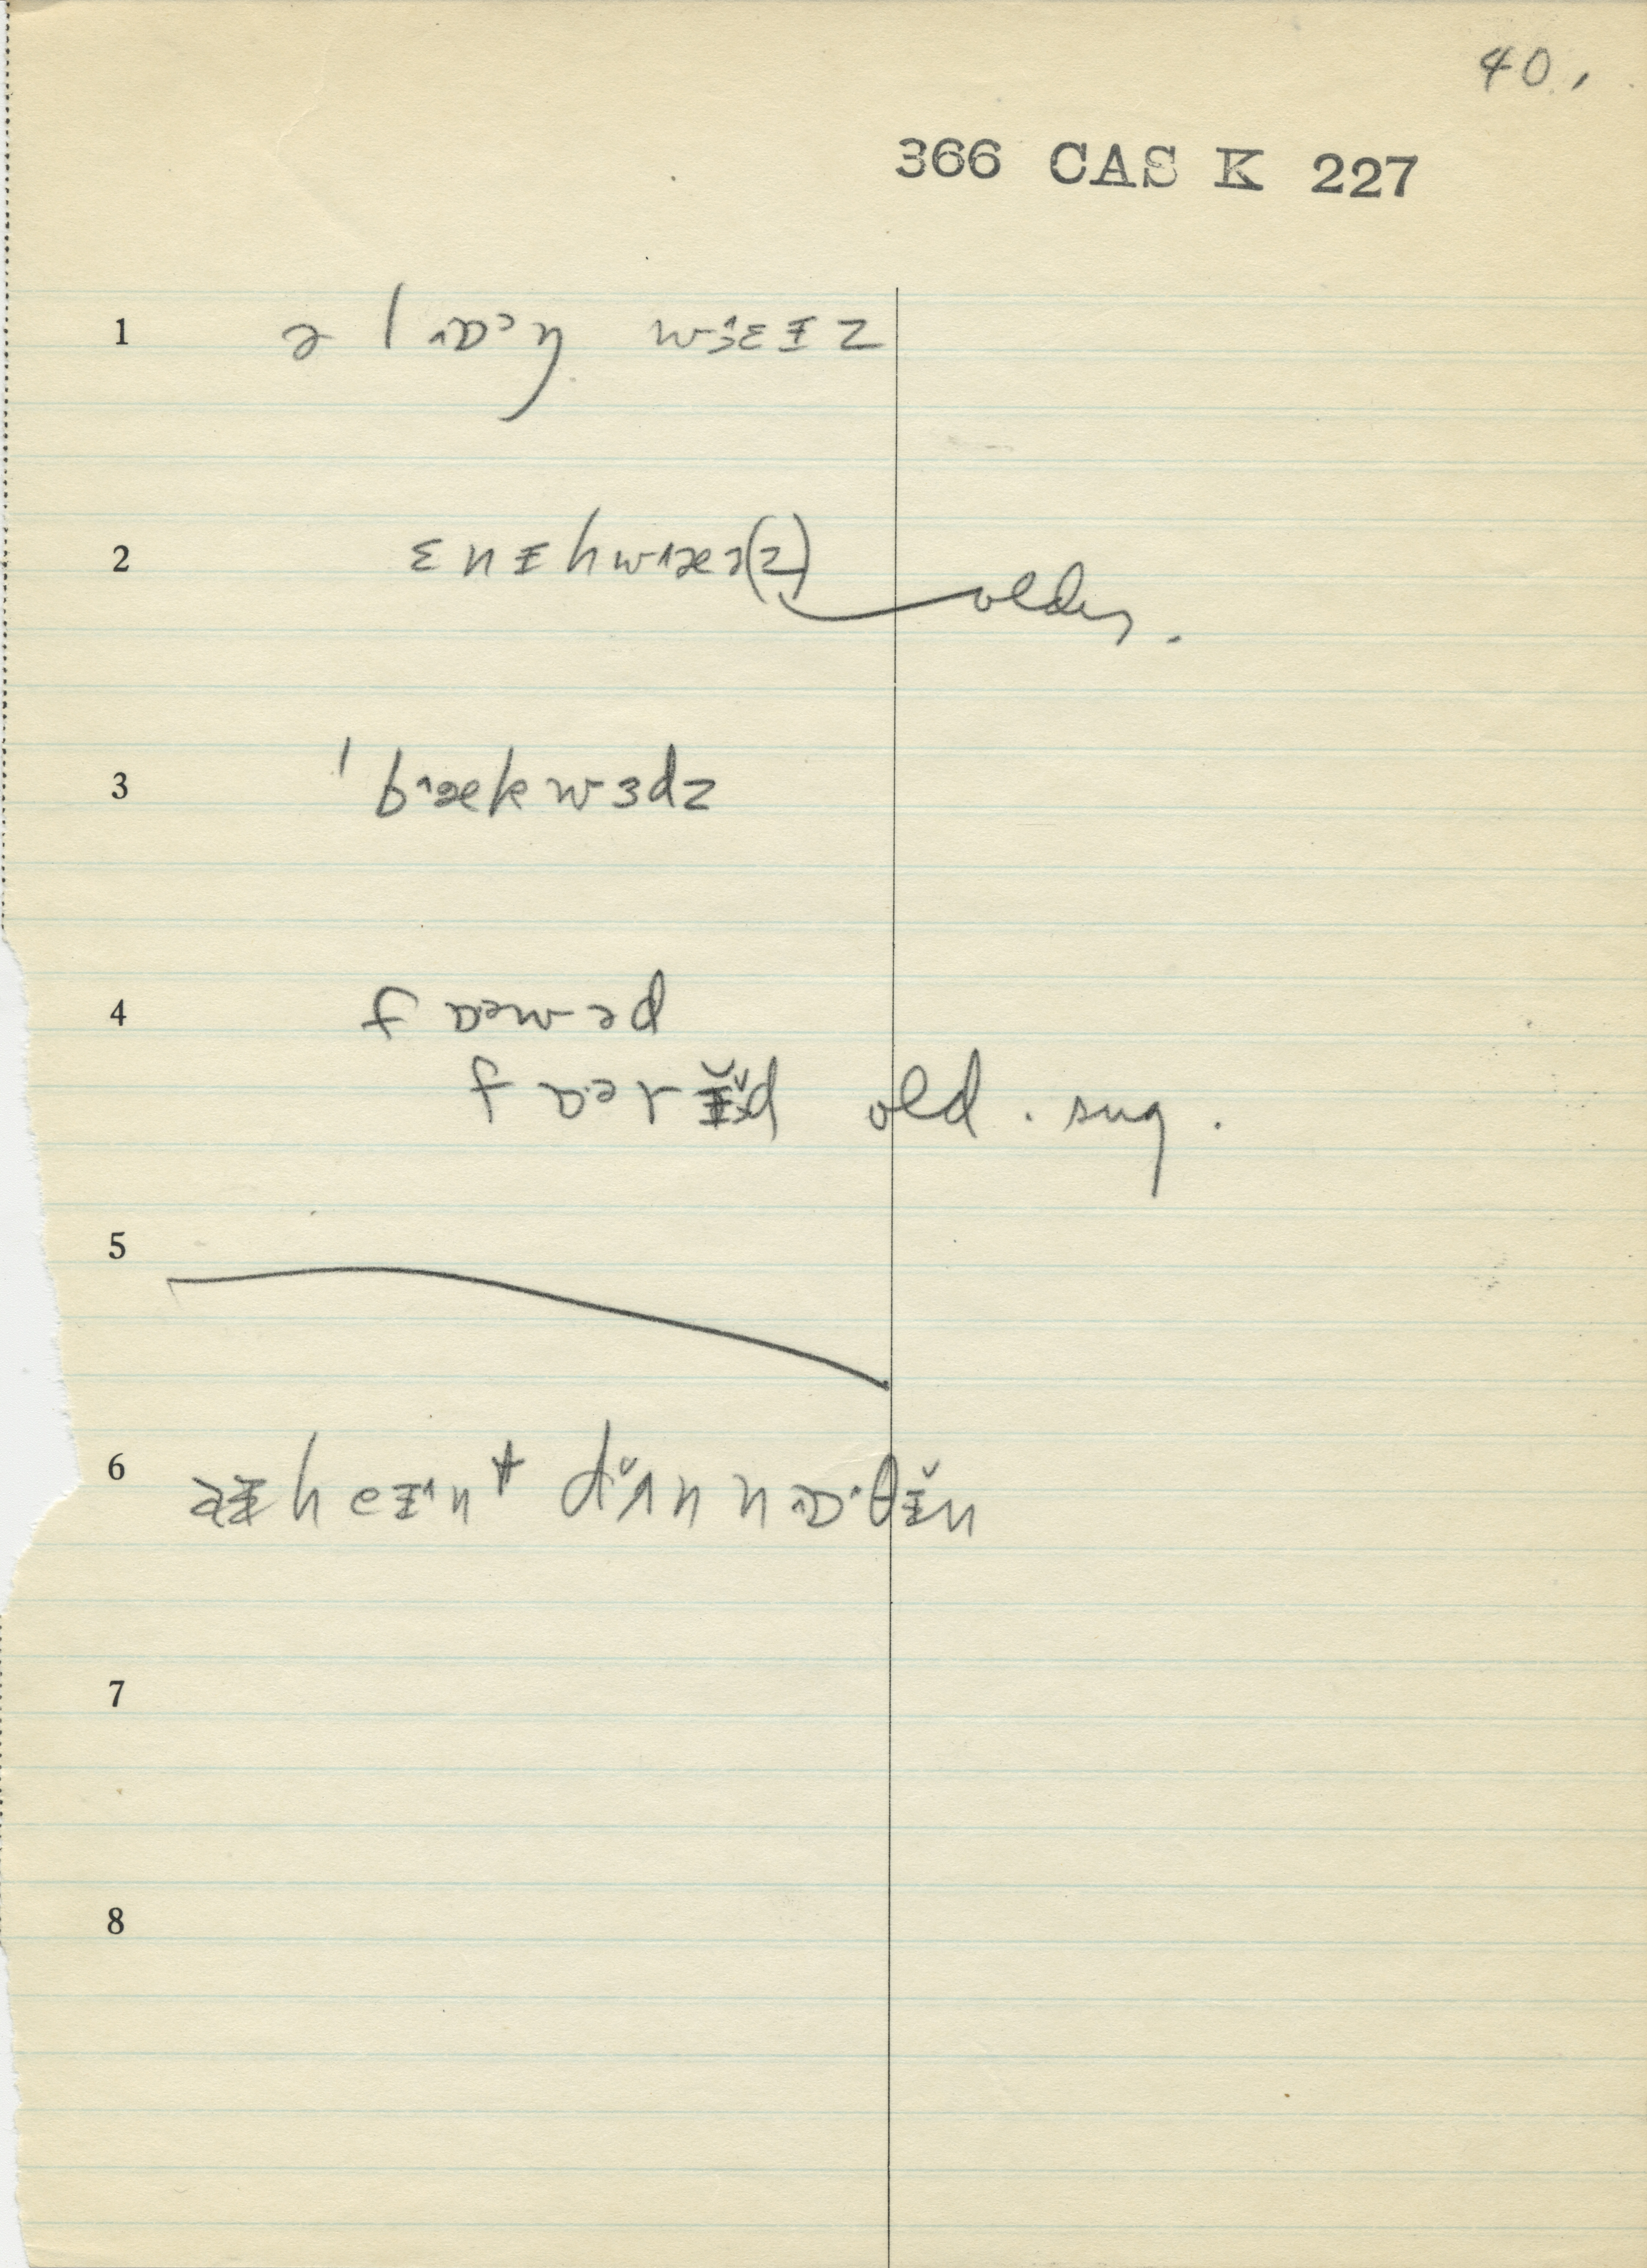 40.
366 CAS K 227
1 ə l ɒ˃ŋ wɜɛɪz
2 ɛnɪhwæə(z) older.
3 ˈbækwɜdz
4 fɒəwəd
fɒərɪ̆d old. sug.
5
6 ə heɪnt dʌ̆n nɒˑθɪ̆n
7
8